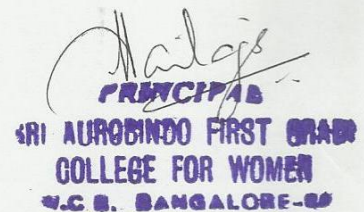 PRINCIPAL
SRI AUROBINDO FIRST GRADE
COLLEGE FOR WOMEN
BANGALORE-